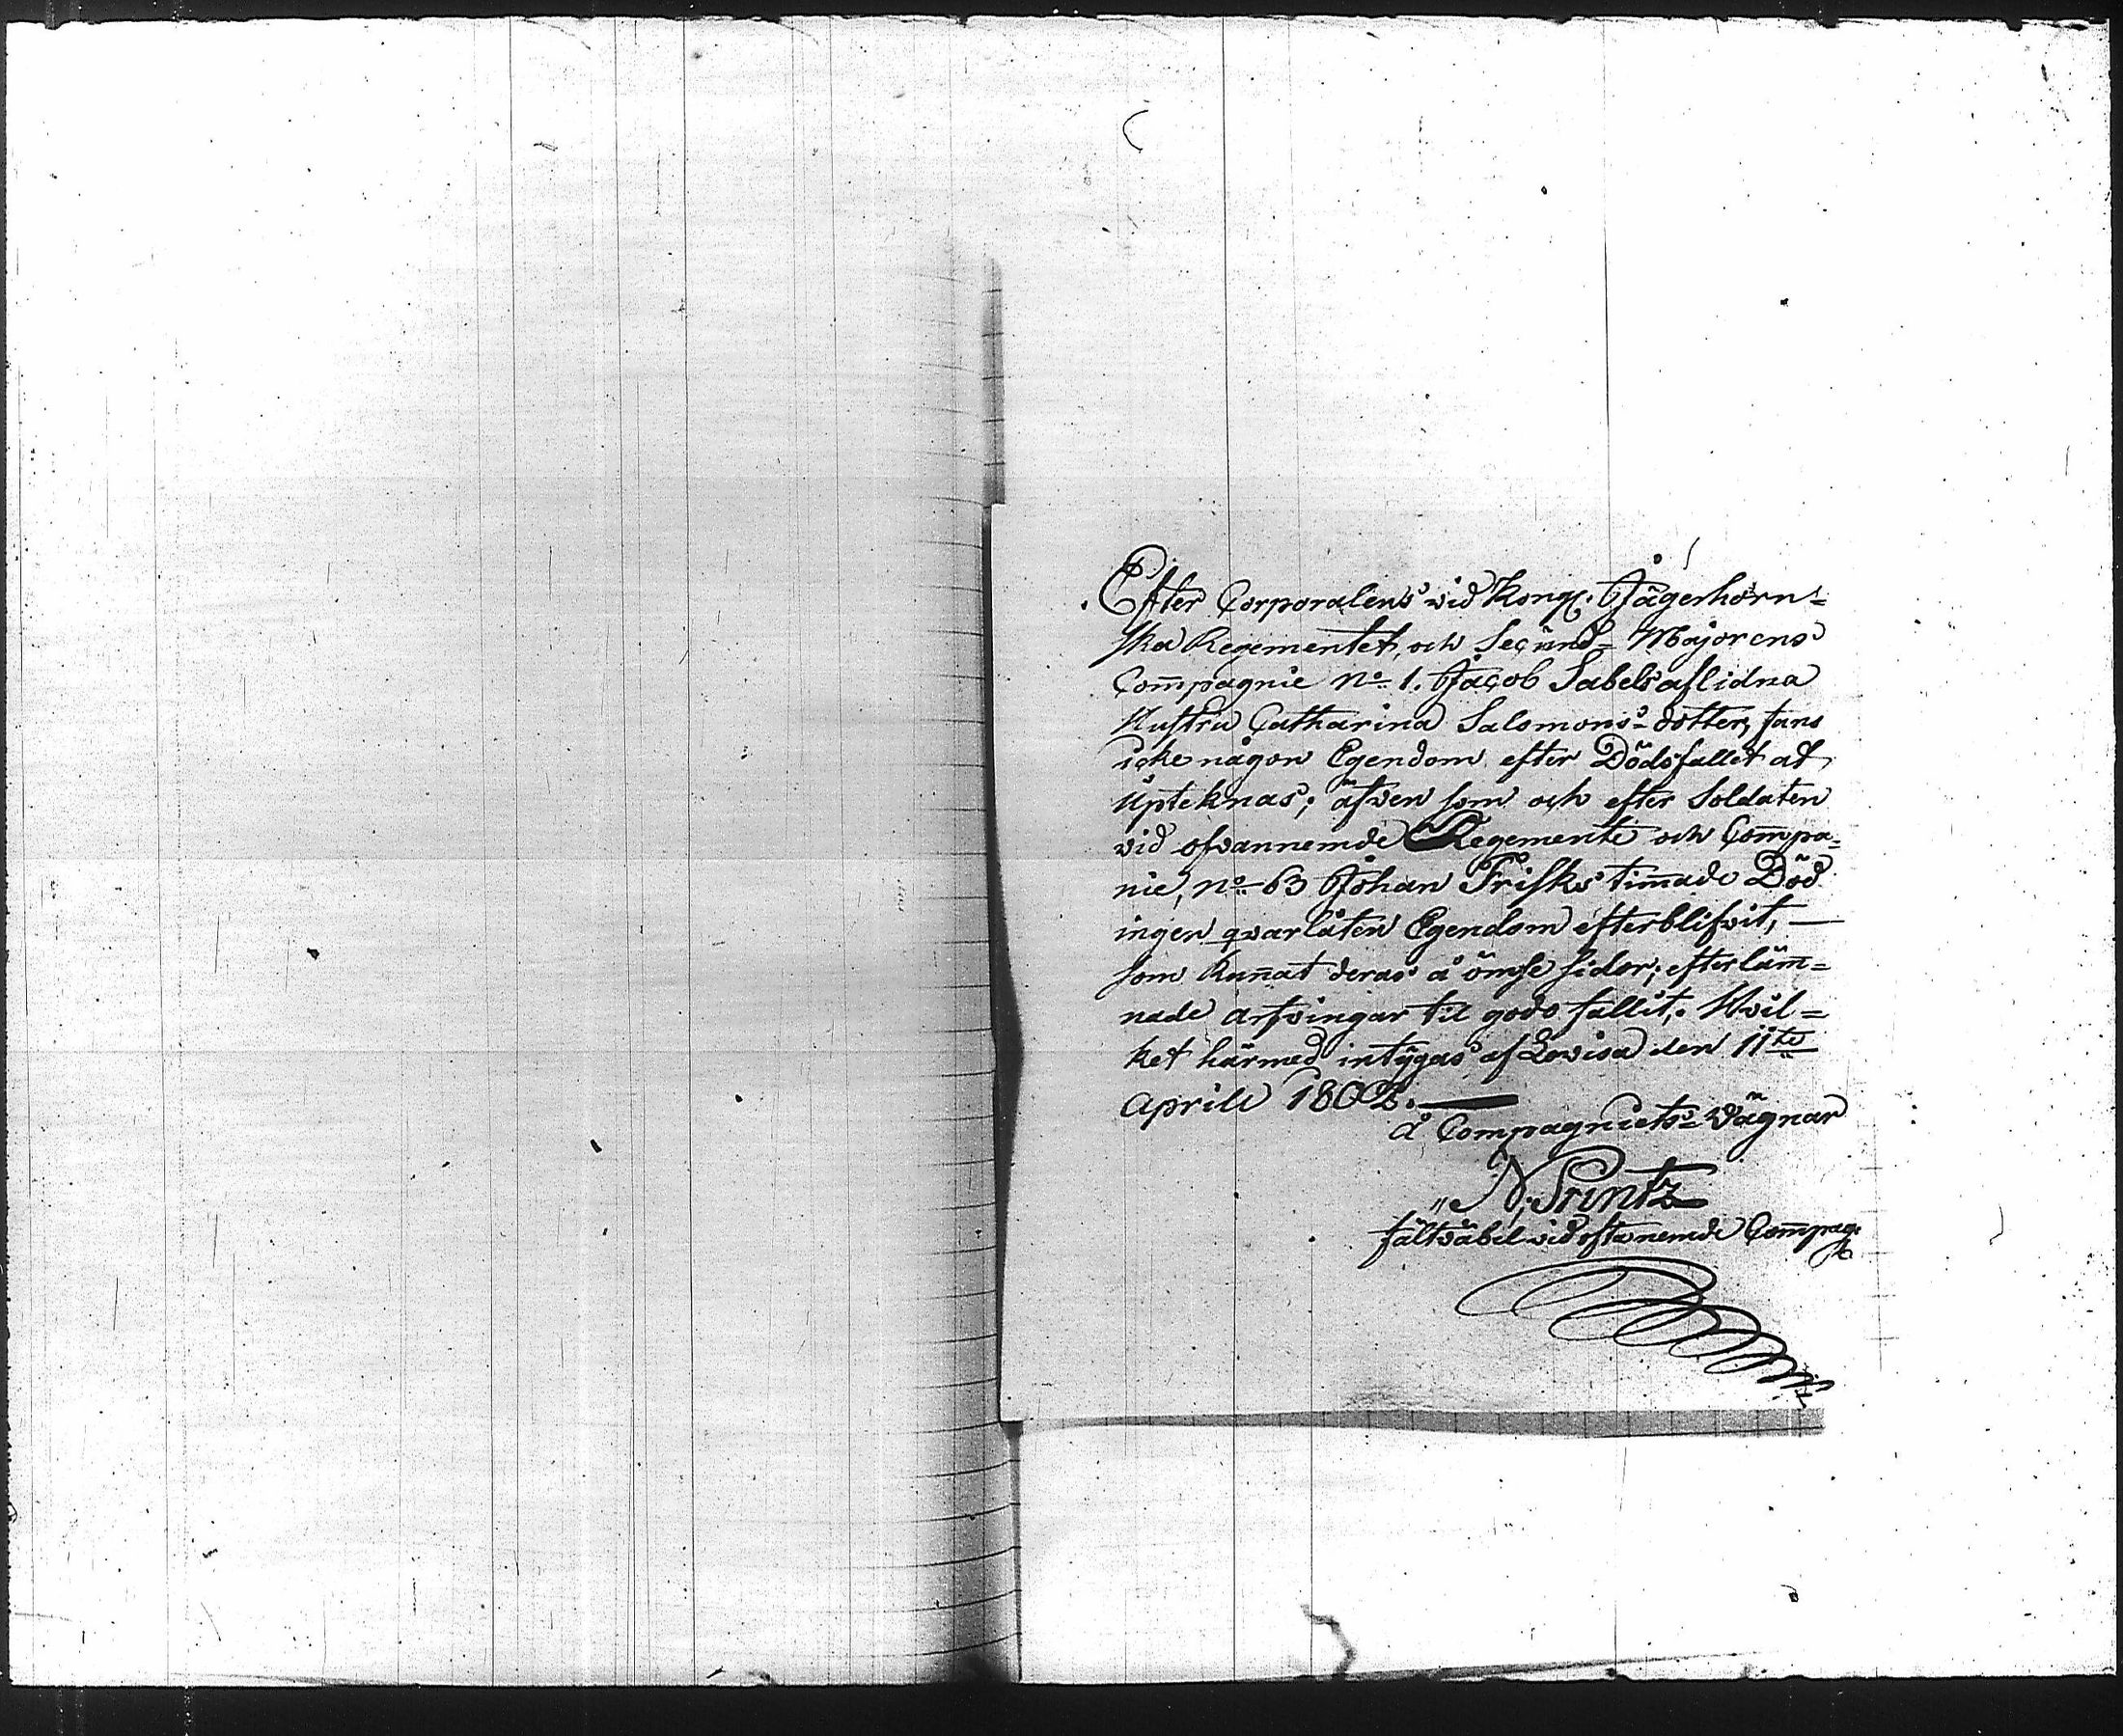 Efter Corporalens vid Kongl. Jägerhorn=
ska Regementet, och Secund= Majorens
Com̅pagnie N:o 1. Jacob Sabels aflidna
Hustru Catharina Salomons=dotter, fans
icke någon Egendom efter Dödsfallet at
Upteknas; äfven som och efter Soldaten
vid ofvannemde Regemente och Com̅pa=
nie, N:o 63 Johan Frisks tim̅ade Död
ingen qvarlåten Egendom efterblifvit,
som kun̅at deras å ömse sidor; efterläm̅=
nade arfvingar til godo fallit; Hvil=
ket härmed intÿgas af Lovisa den 11te
Aprill 1802.
å Compagniets Vägnar
N. Printz
fältväbel vid oftanemde Com̅pag: